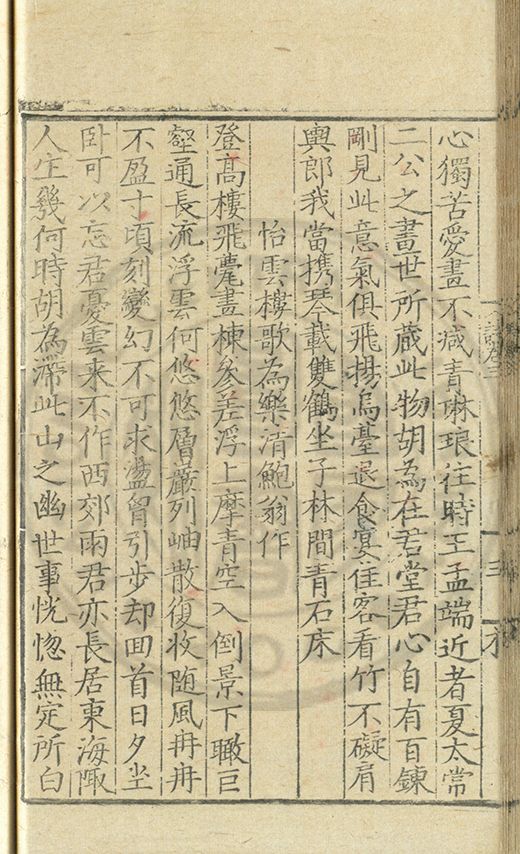 心獨苦愛畫不減青琳琅往時王孟端近者夏太常
二公之畫世所藏此物胡為在君堂君心自有百鍊
剛見此意氣俱飛揚烏臺退食宴佳客看竹不礙肩
輿郎我當携琴載雙鶴坐子林間青石床
怡雲樓歌為樂清鮑翁作
登高樓飛甍畫棟參差浮上摩青空入倒景下瞰巨
壑通長流浮雲何悠悠層巖列岫散復收随風冉冉
不盈寸頃刻變幻不可求盪胷引步却回首日夕坐
卧可以忘君憂雲来不作西郊雨君亦長居東海陬
人生幾何時胡為滯此山之幽世事恍惚無定所白